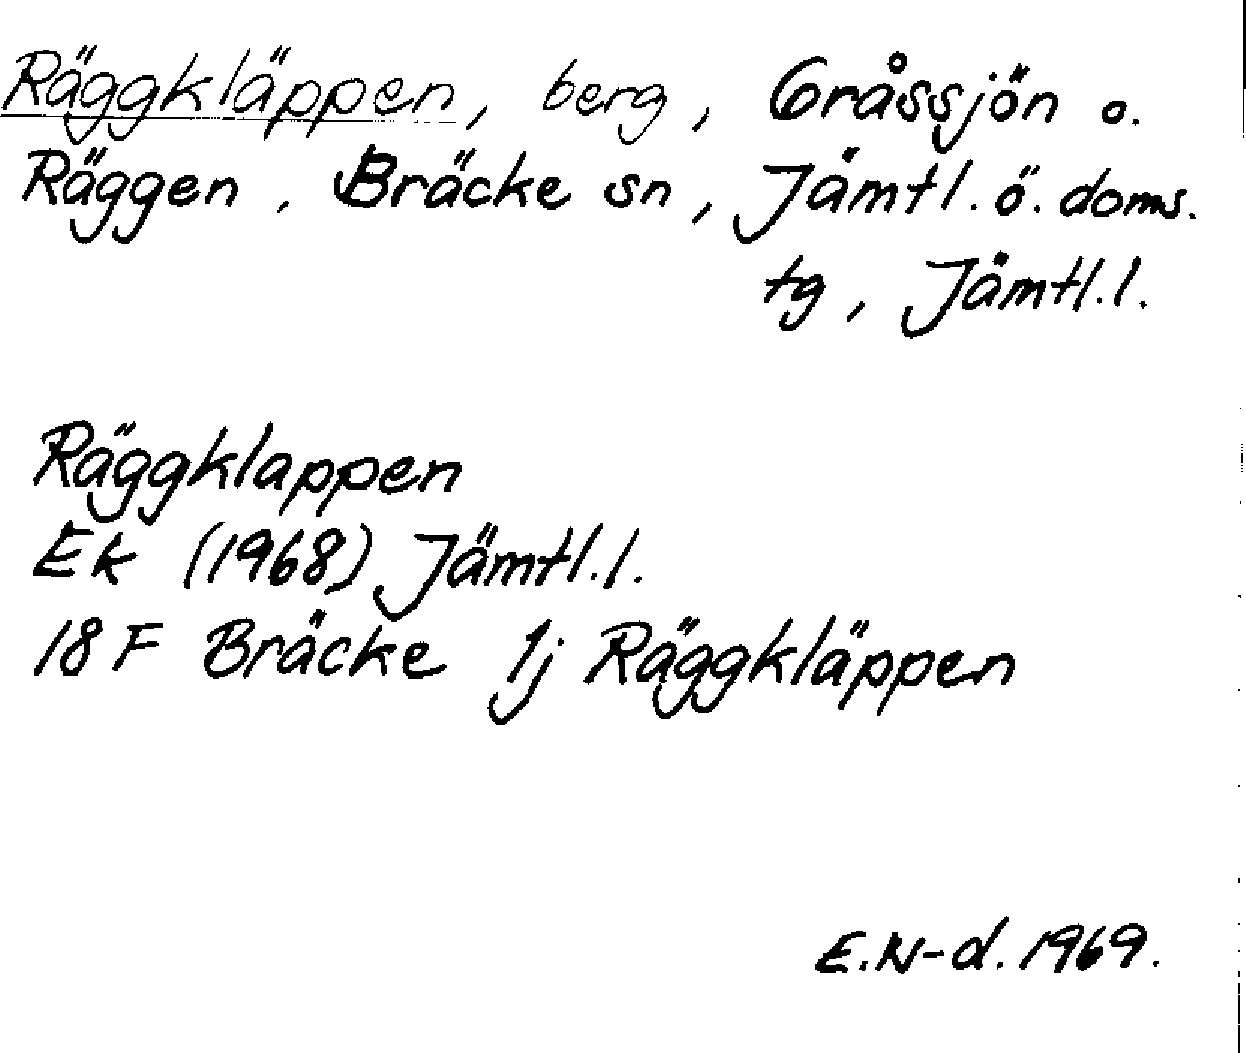 Räggkläppen, berg, Gråssjön o.
Räggen, Bräcke sn, Jämtl. ö. doms.
tg, Jämtl. l.
Räggklappen
Ek (1968) Jämtl. l.
18 F Bräcke 1j Räggkläppen
E. N-d. 1969.